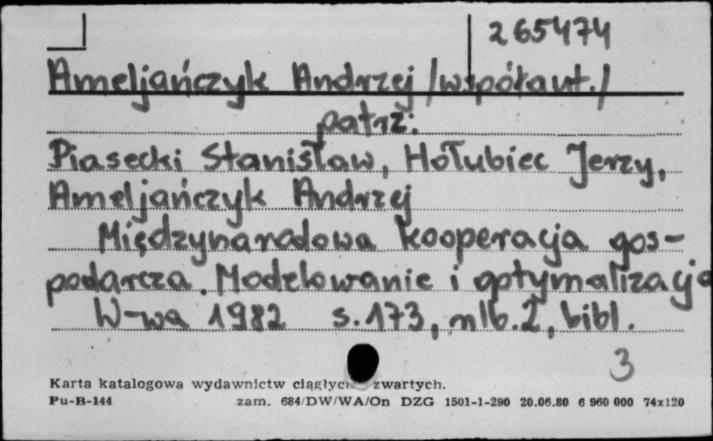 265474
Ameljańczyk Andrzej /współaut./
patrz:
Piasecki Stanisław, Hołubiec Jerzy,
Ameljańczyk Andrzej
Międzynarodowa kooperacja gos-
podarcza. Modelowanie i optymalizacja
W-wa 1982 s. 173, nlb. 2, bibl.
3
Karta katalogowa wydawnictw ciągłych zwartych.
Pu-B-144 zam. 684/DW/WA/On DZG 1501-1-290 20.06.80 6 960 000 74x120